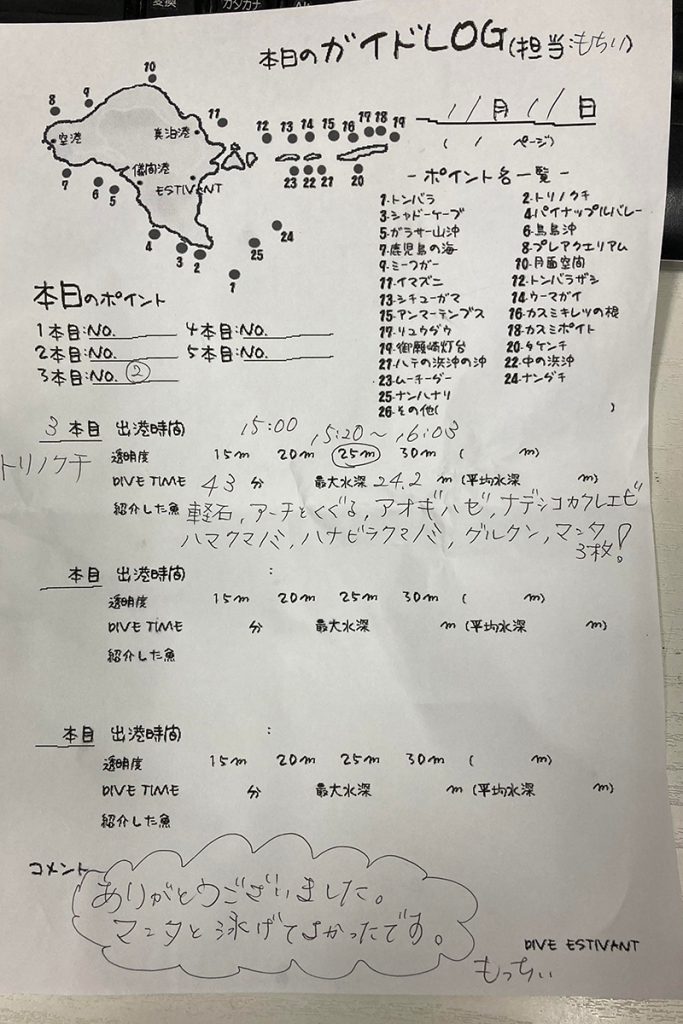 変換
カタカナ
Alt
本日のガイドLOG(担当:もちい)
11月11日
( / ページ)
10
9
8
空港
真泊港
11
儀間港
ESTIVANT
7
6
5
4
3
2
1
12 13 14 15 16 17 18 19
23 22 21 20
24
25
- ポイント名一覧 -
1.トンバラ 2.トリノクチ
3.シャドーケーブ 4.パイナップルバレー
5.ガラサー山沖 6.鳥島沖
7.鹿児島の海 8.プレアクエリアム
9.ミーフガー 10.月面空間
11.イマズニ 12.トンバラザシ
13.シチューガマ 14.ウーマガイ
15.アンマーテンプス 16.カスミキレツの根
17.リュウダウ 18.カスミポイト
19.御願崎灯台 20.タケンチ
21.ハテの浜沖の沖 22.中の浜沖
23.ムーチーダー 24.ナンダチ
25.ナンハナリ
26.その他( )
本日のポイント
1本目:NO. 4本目:NO.
2本目:NO. 5本目:NO.
3本目:NO. 2
3 本目 出港時間 15:00 15:20～16:03
トリノクチ
透明度 15m 20m 25m 30m ( m)
DIVE TIME 43 分 最大水深 24.2 m (平均水深 m)
紹介した魚 軽石,アーチをくぐる,アオギハゼ,ナデシコカクレエビ
ハマクマノミ,ハナビラクマノミ,グルクン,マンタ
3枚!
本目 出港時間 :
透明度 15m 20m 25m 30m ( m)
DIVE TIME 分 最大水深 m (平均水深 m)
紹介した魚
本目 出港時間 :
透明度 15m 20m 25m 30m ( m)
DIVE TIME 分 最大水深 m (平均水深 m)
紹介した魚
コメント
ありがとうございました。
マンタと泳げてよかったです。
DIVE ESTIVANT
もっちぃ